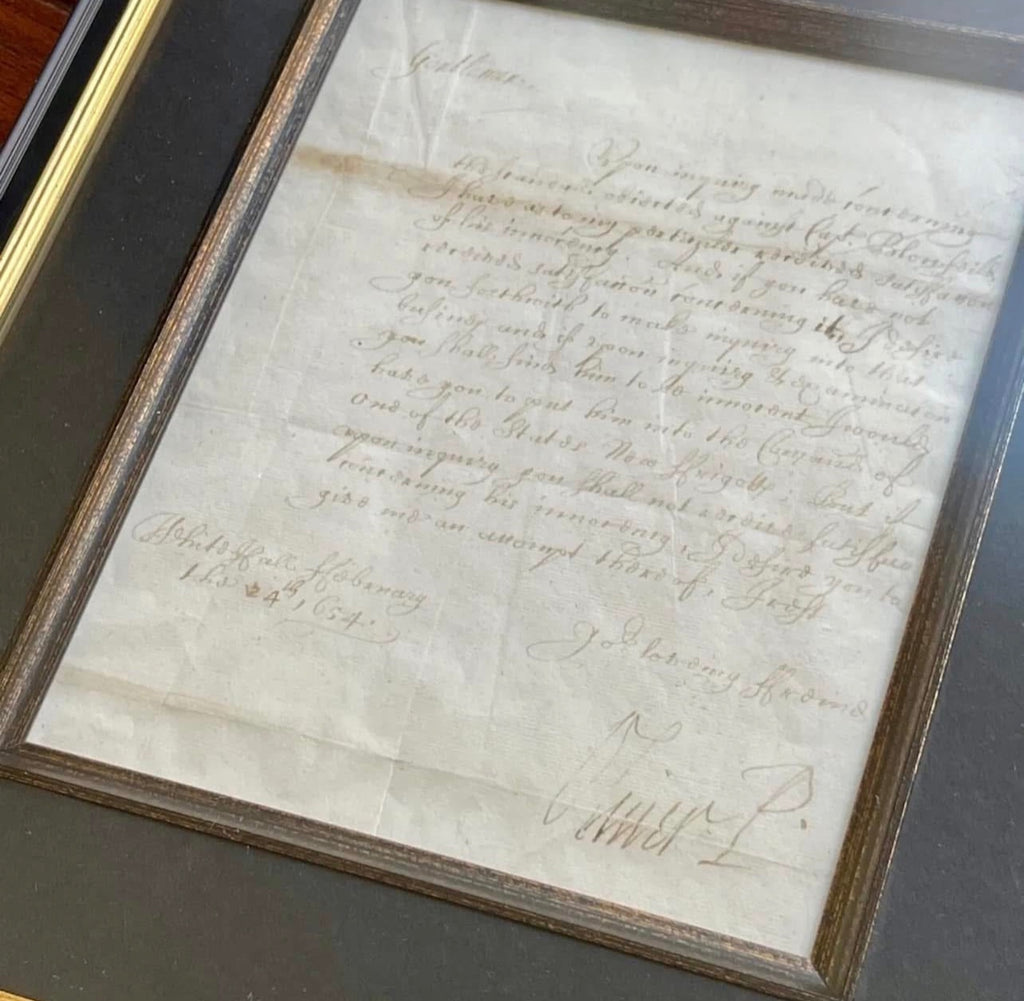 Gentlemen.
Upon inquiry made concerning
the scander obiected against Capt. Blomfeild
I haue as to my perticuler received satisfaccon
of his innocency. And if you have not
received satisfaccon concerning it, I desire
you forthwith to make inquiry into that
busines and if upon inquiry & examinacon
you shall finde him to be innocent I would
have you to put him into the Comand of
One of the States New ffrigotts. But if
upon inquiry you shall not receive satisfac
concerning his innocency, I desire you to
give me an accompt thereof, I rest
Yor loveing ffreind
White Hall ffebruary
the 24th 1654.
Oliver P.